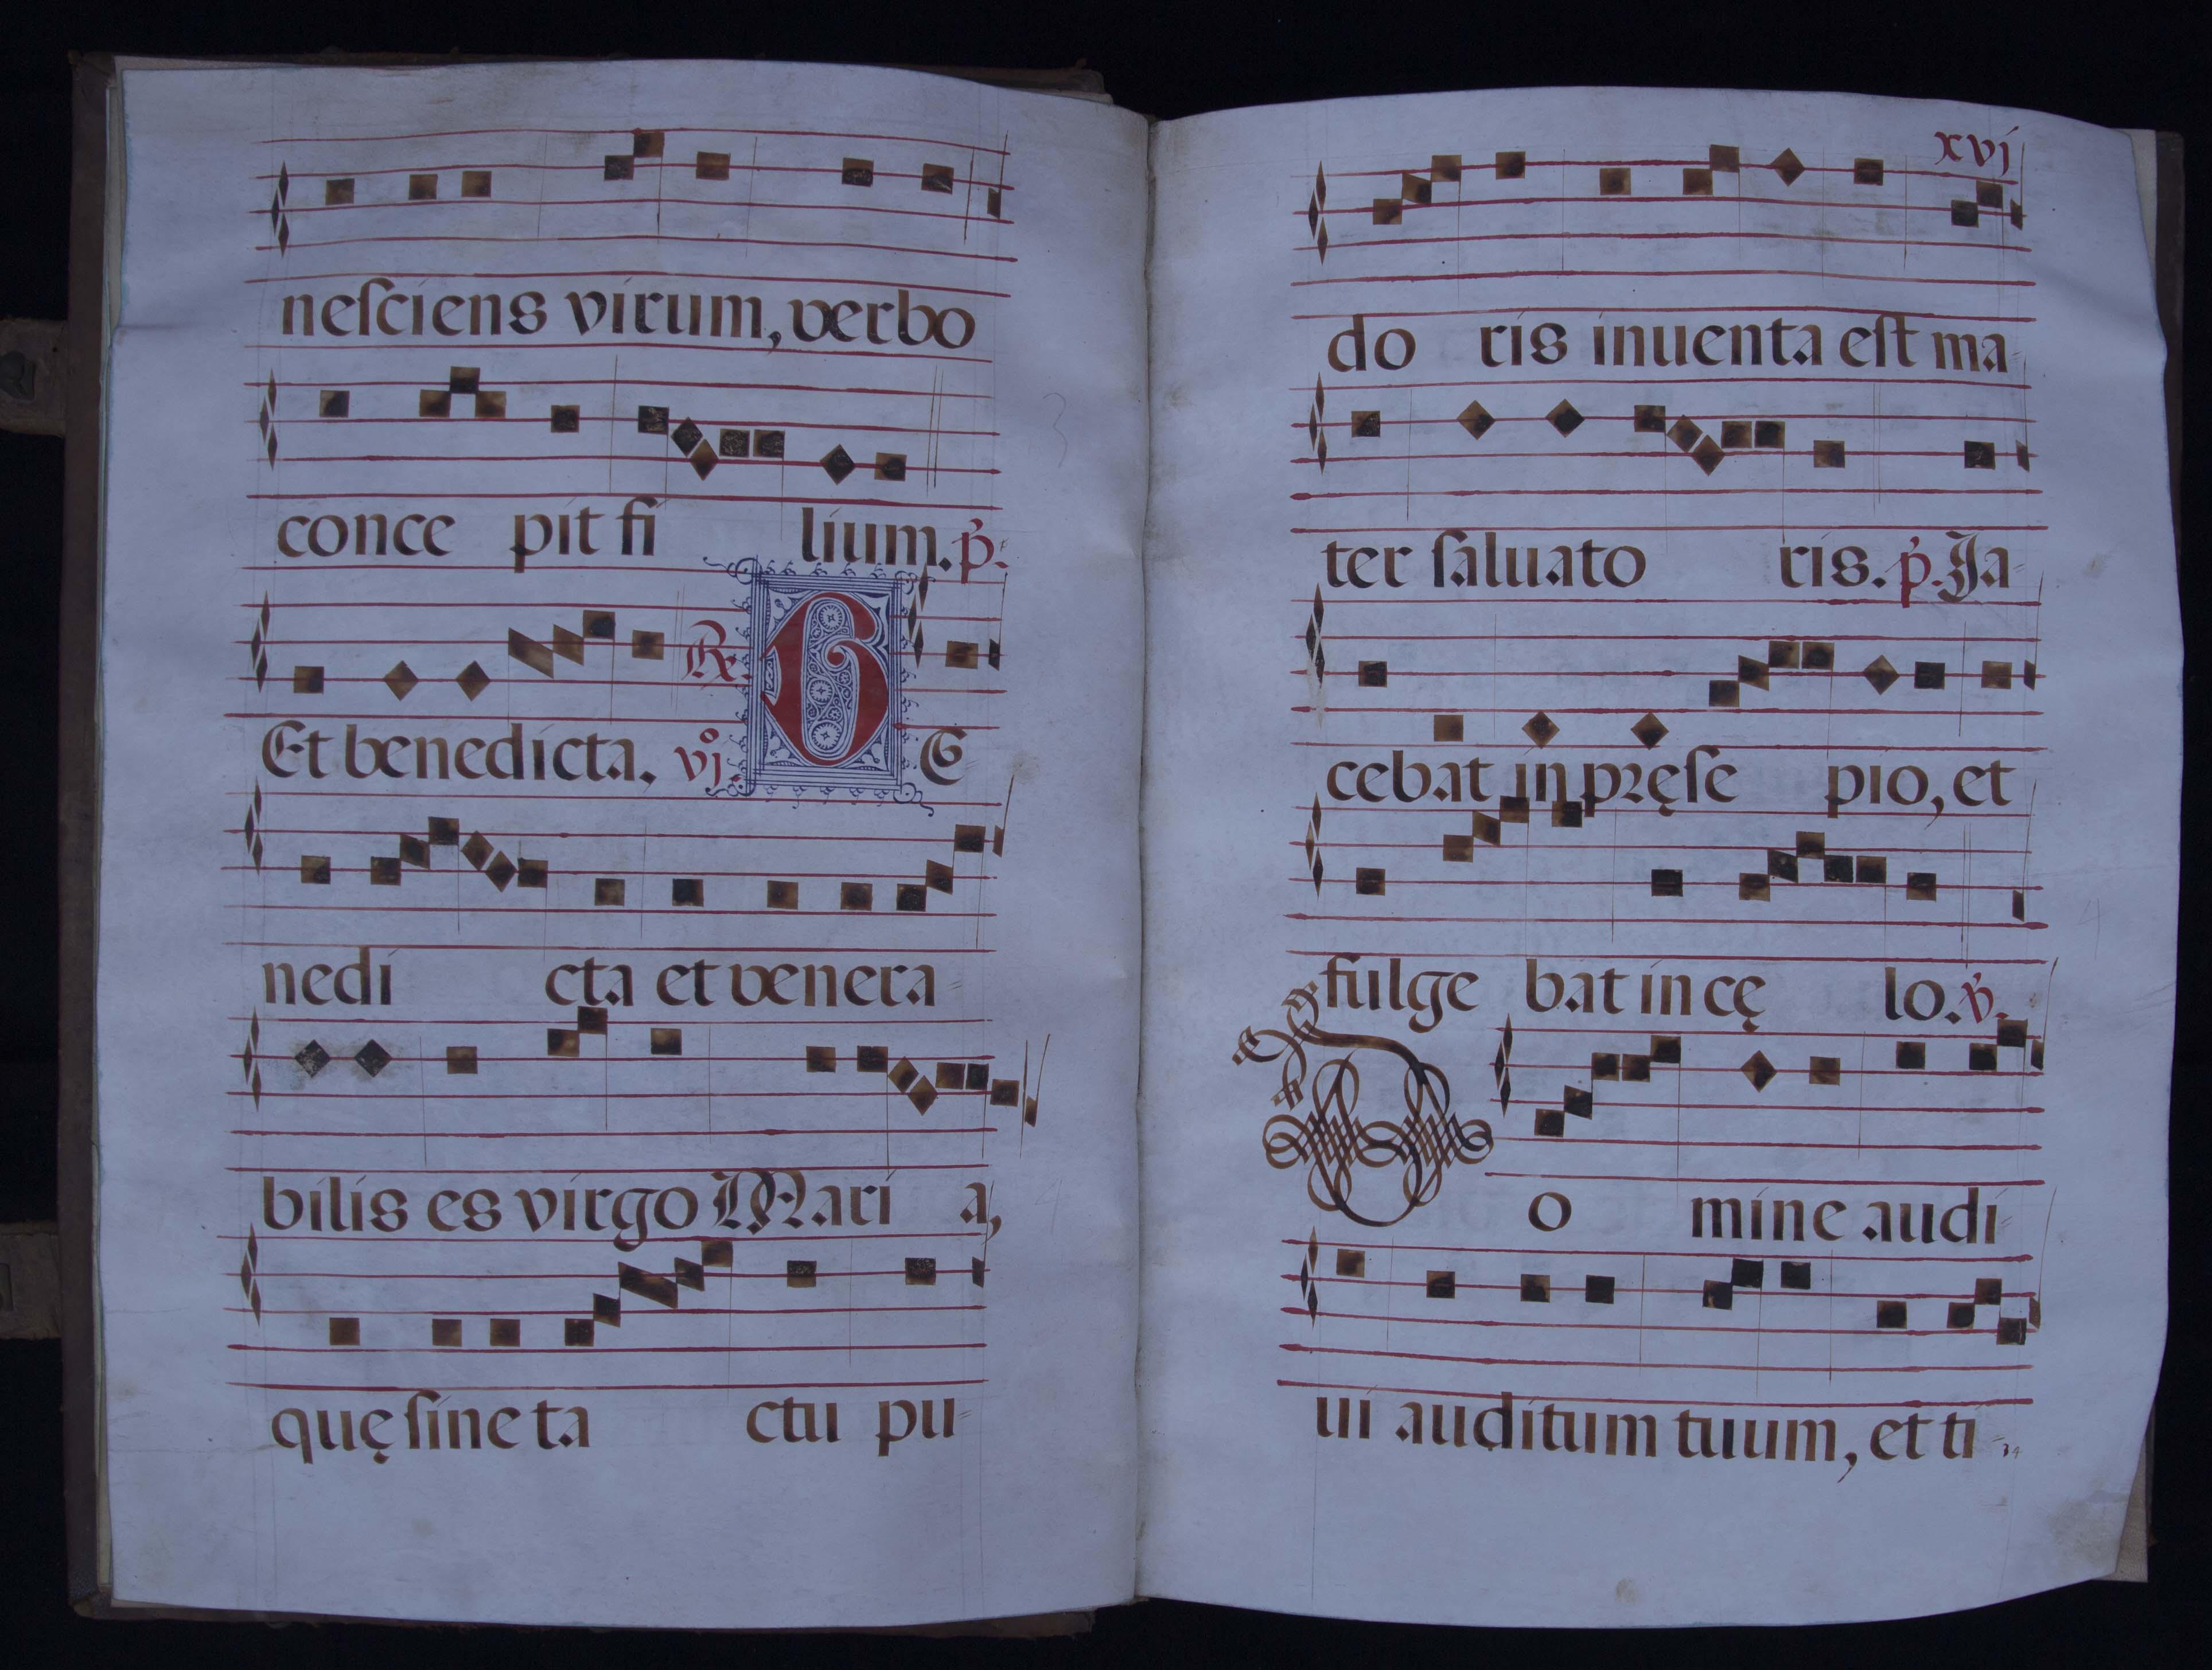 neſciens virum, verbo
conce pit fi lium. p̃.
Et benedicta. ℟. vjº. B E
nedi cta et venera=
bilis es virgo Mari a,
quę ſine ta ctu pu=
xvj
do ris inuenta eſt ma=
ter ſaluato ris. p̃. Ja=
cebat in pręſe pio, et
fulge bat in cę lo. ṽ.
D o mine audi=
ui auditum tuum, et ti=